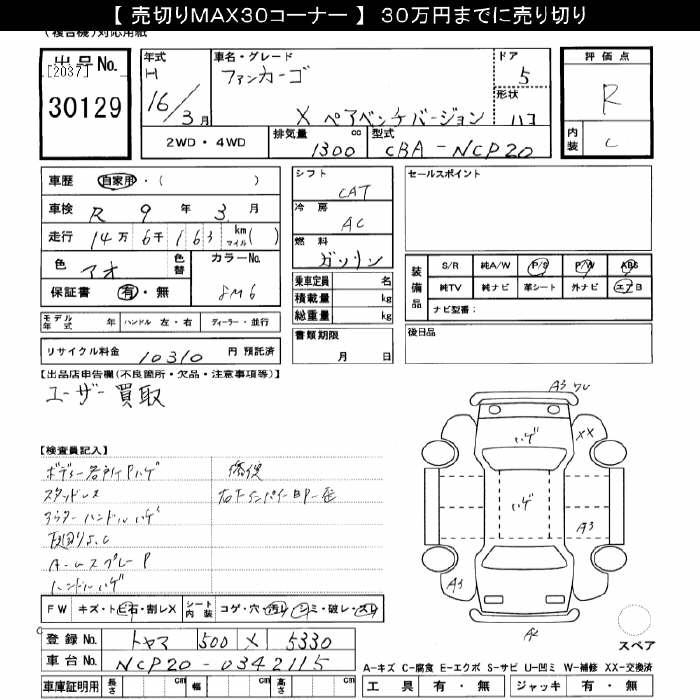 【 売切りMAX30コーナー 】 30万円までに売り切り
(複合機)対応用紙
出品No.
[2037]
30129
年式
H 16/3月
車名・グレード
ファンカーゴ
X ペアベンチバージョン
ドア
5
形状
ハコ
評価点
R
内装
C
2WD・4WD
排気量 cc
1300
型式
CBA-NCP20
車歴 自家用・( )
車検 R 9年 3月
走行 14万 6千 163 km マイル( )
色 アオ
色替
カラーNo.
8M6
保証書 有・無
シフト
CAT
冷房
AC
燃料
ガソリン
乗車定員 名
積載量 kg
総重量 kg
書類期限
月 日
セールスポイント
装備品
S/R 純A/W P/S P/W ABS
純TV 純ナビ 革シート 外ナビ エアB
ナビ型番:
後日品
モデル年式 年 ハンドル 左・右 ディーラー・並行
リサイクル料金 10310 円 預託済
【出品店申告欄(不良箇所・欠品・注意事項等)】
ユーザー買取
【検査員記入】
ボディー各所イPハゲ
スタッドレス
アウターハンドルハゲ
ルームスプレーP
ハンドルハゲ
A3 ワレ
ハゲ
XX
ハゲ
A3
A3
A2
スペア
FW キズ・トビ石・割レX
シート内装 コゲ・穴・汚レ・シミ・破レ・スレ
登録No. トヤマ 500 X 5330
車台No. NCP20-0342115
車庫証明用 長さ cm 幅 cm 高さ cm
A-キズ C-腐食 E-エクボ S-サビ U-凹ミ W-補修 XX-交換済
工具 有・無 ジャッキ 有・無